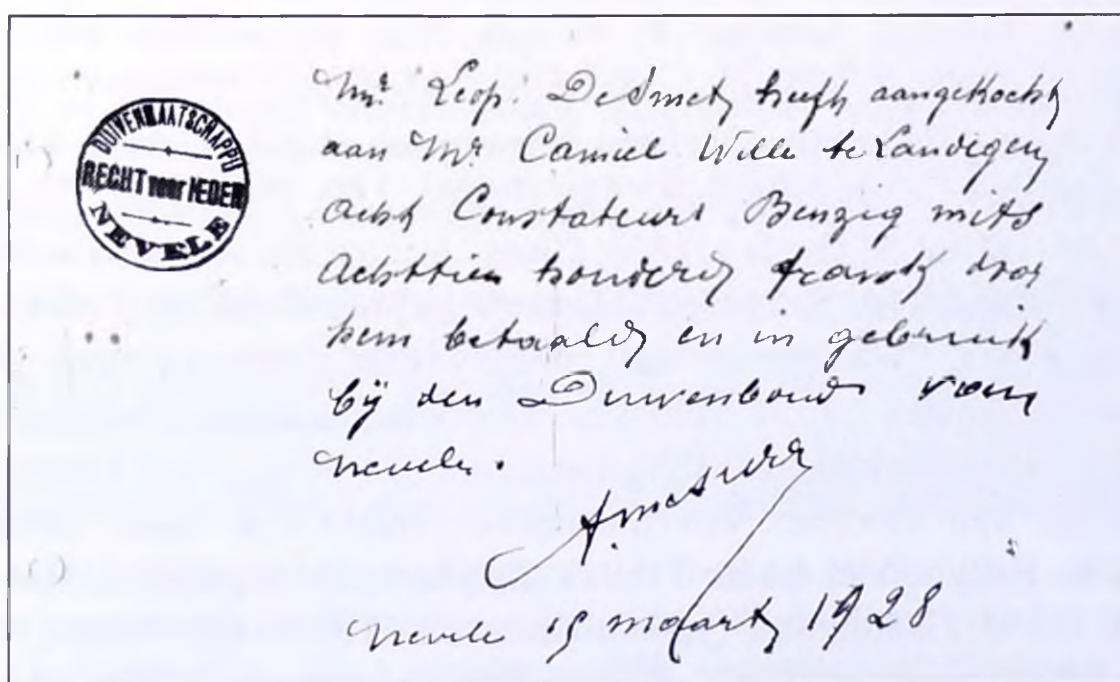 DUIVENMAATSCHAPPIJ
RECHT voor IEDER
NEVELE
Mr Leop. DeSmet heeft aangekocht
aan Mr Camiel Wille te Landegem
acht Constateurs Benzig mits
achttien honderd frank door
hem betaald en in gebruik
bij den Duivenbond van
Nevele.
Nevele 15 maart 1928